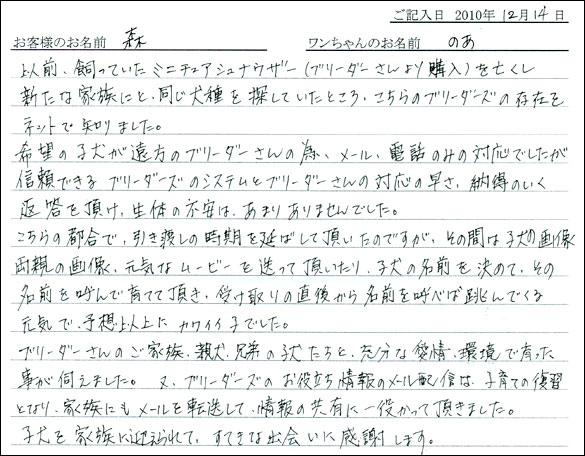 ご記入日 2010年 12月 14日
お客様のお名前 森 ワンちゃんのお名前 のあ
以前、飼っていたミニチュアシュナウザー(ブリーダーさんより購入)を亡くし
新たな家族にと、同じ犬種を探していたところ、こちらのブリーダーズの存在を
ネットで知りました。
希望の子犬が遠方のブリーダーさんの為、メール、電話のみの対応でしたが
信頼できるブリーダーズのシステムとブリーダーさんの対応の早さ、納得のいく
返答を頂け、生体の不安は、あまりありませんでした。
こちらの都合で、引き渡しの時期を延ばして頂いたのですが、その間は子犬の画像
両親の画像、元気なムービーを送って頂いたり、子犬の名前を決めて、その
名前を呼んで育てて頂き、受け取りの直後から名前を呼べば跳んでくる
元気で、予想以上にカワイイ子でした。
ブリーダーさんのご家族、親犬、兄弟の子犬たちと、充分な愛情、環境で育った
事が伺えました。 又、ブリーダーズのお役立ち情報のメール配信は、子育ての復習
となり、家族にもメールを転送して、情報の共有に一役かって頂きました。
子犬を家族に迎えられて、すてきな出会いに感謝します。